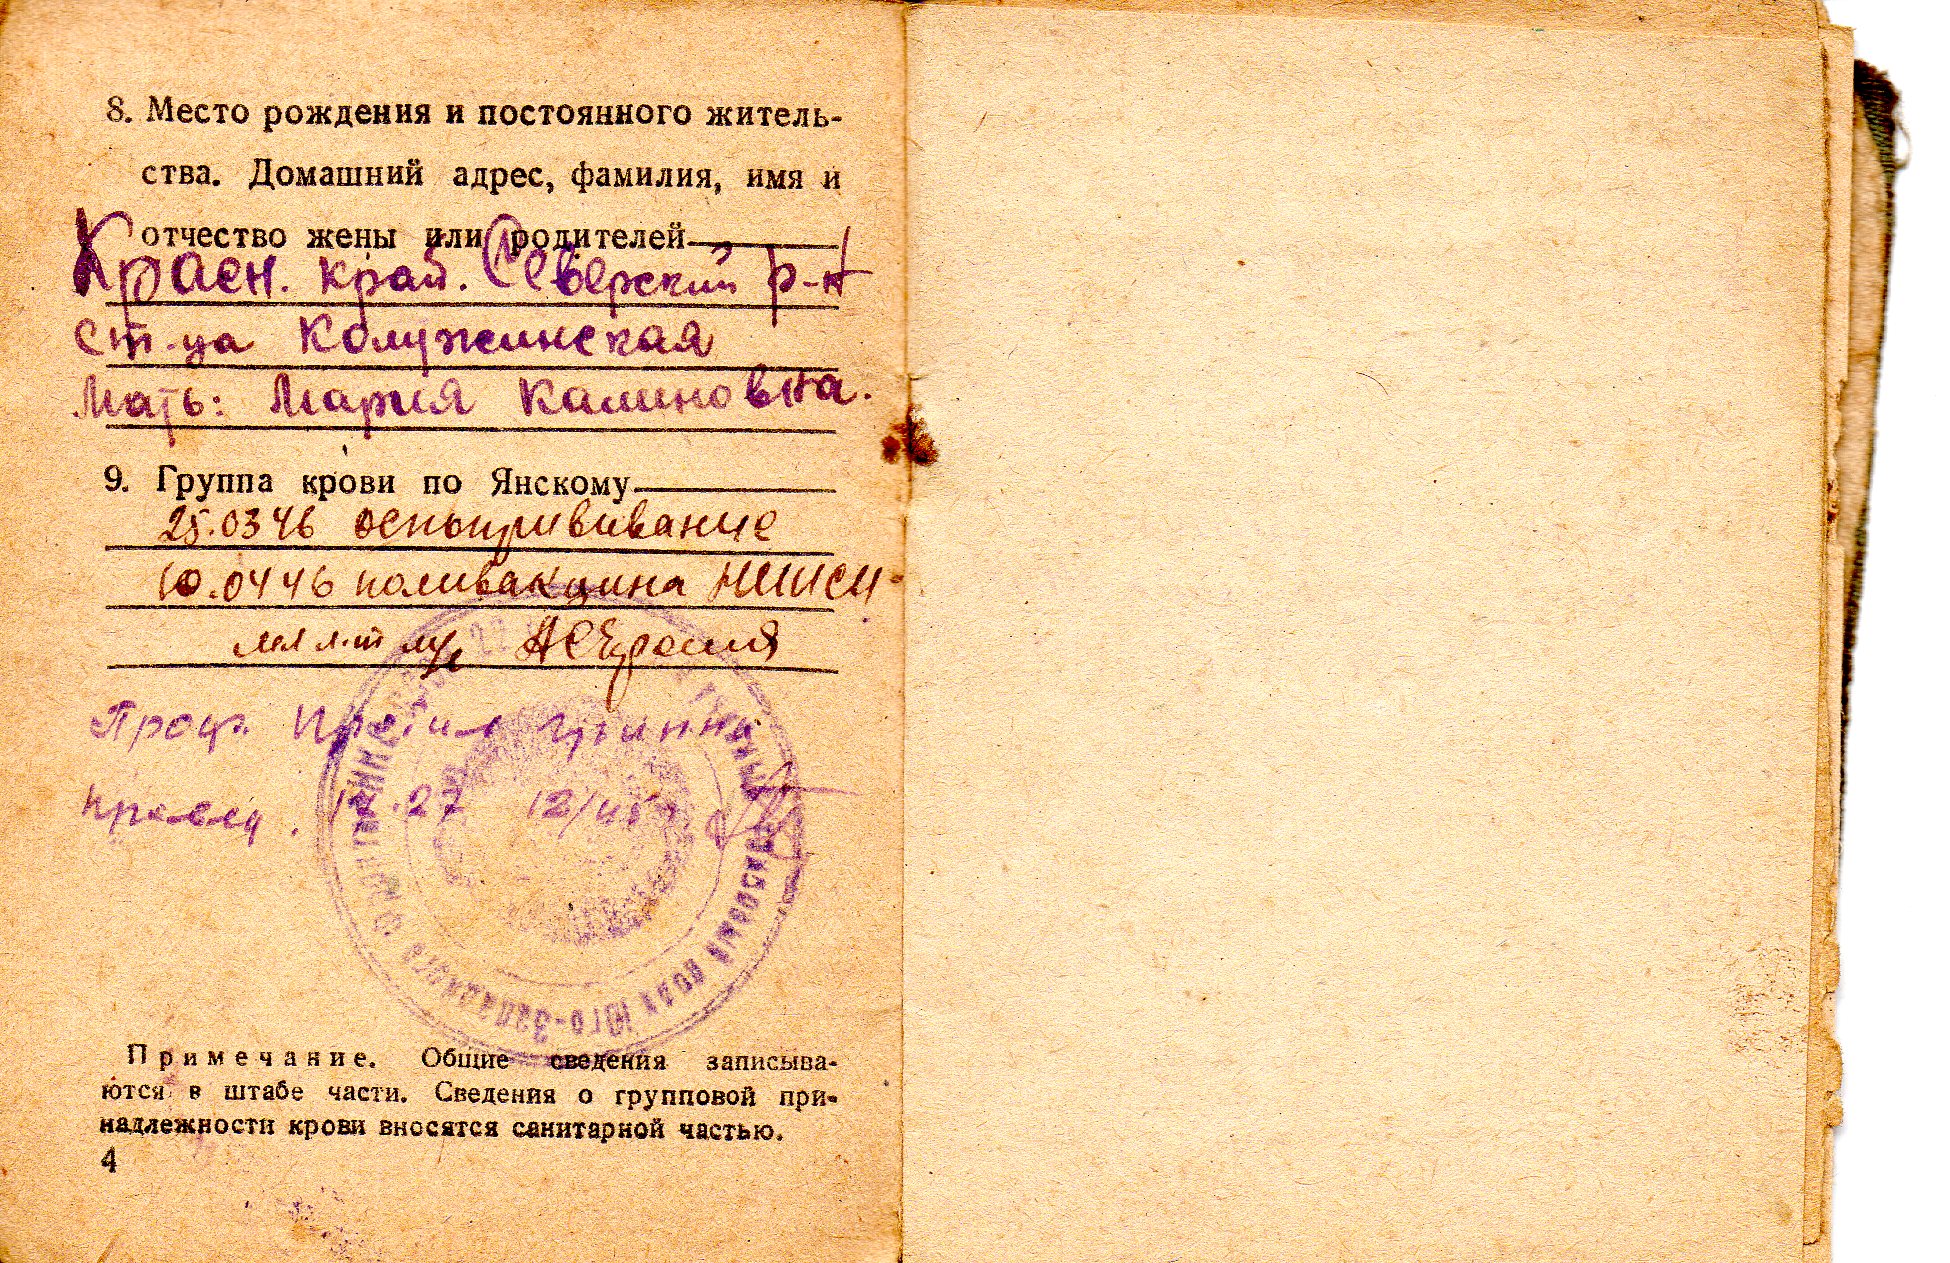 8. Место рождения и постоянного житель-
ства. Домашний адрес, фамилия, имя и
отчество жены или родителей
Красн. край. Северский р-н
ст-ца Колужинская
Мать: Мария Калиновна.
9. Группа крови по Янскому
25.03 46 оспопрививание
10.04 46 поливакцина НИИСИ
Проф. Против гриппа
12/
Юго-Западного
Примечание. Общие сведения записыва-
ются в штабе части. Сведения о групповой при-
надлежности крови вносятся санитарной частью.
4